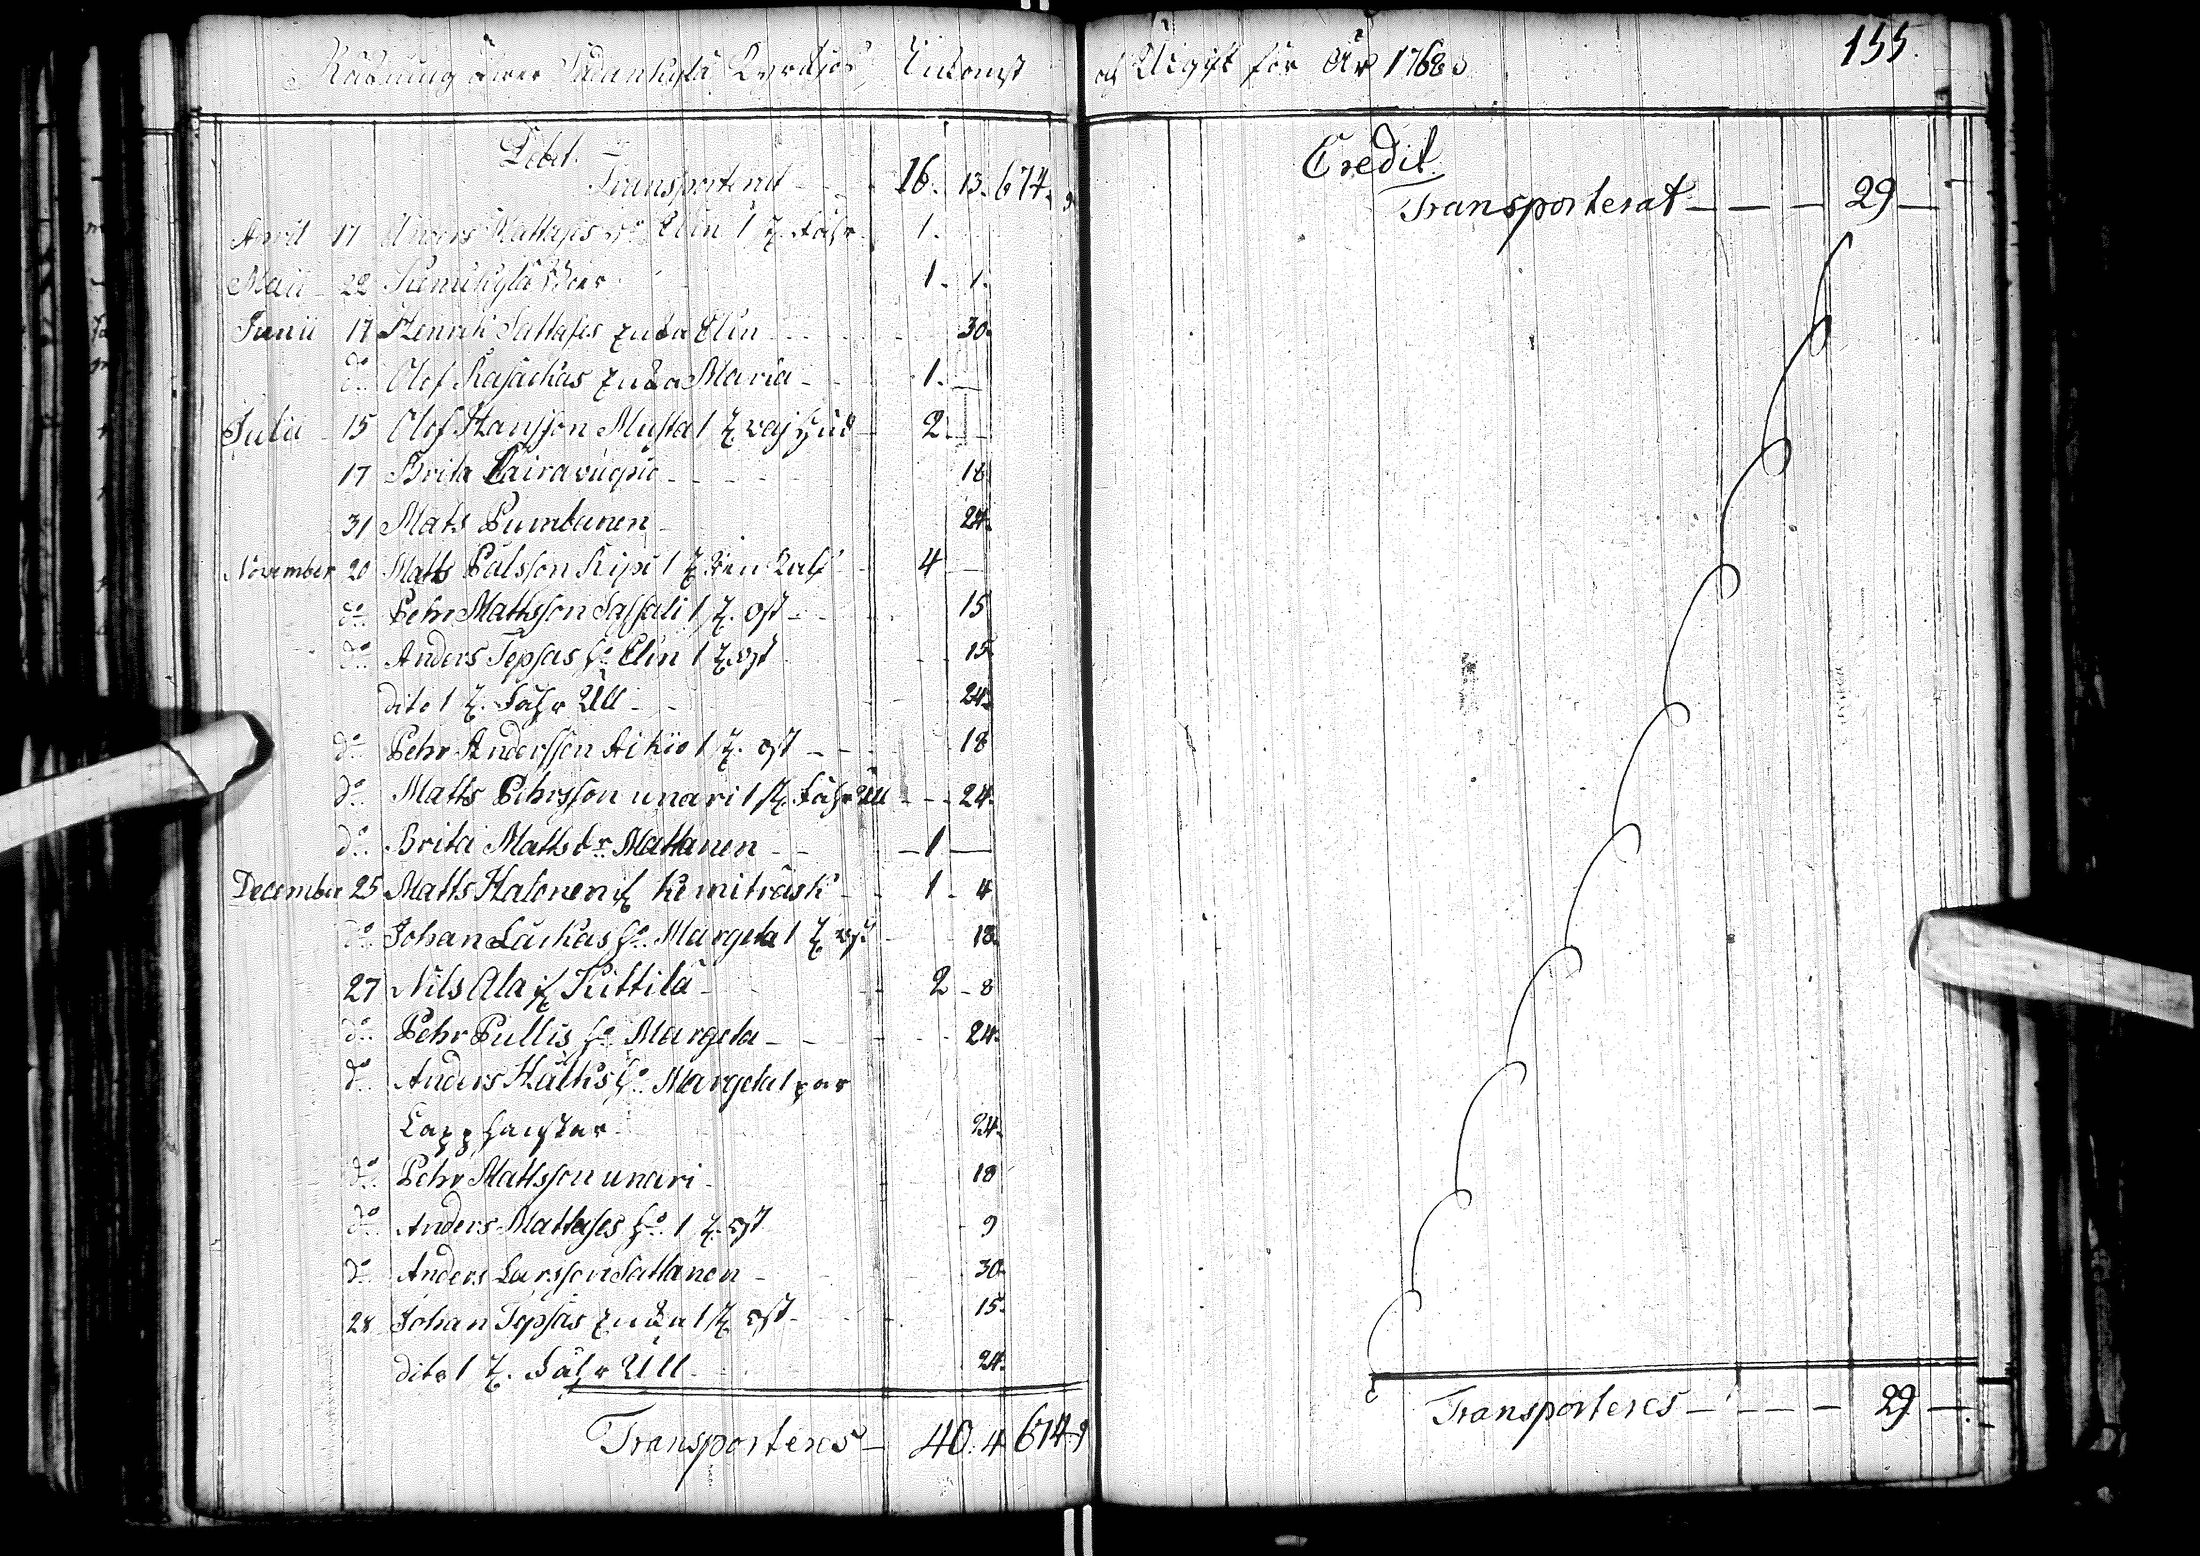 Räkning öwer Sådankylä Kyrckjos Inkomst
och Utgift för År 1768
155.
Debet.
Transporterat 16. 13. 674. 9
April 17 Anders Mattases h:o Elin 1 Fåhr 1.
Maii 22 Sumikylä 1. 1.
Junii 17 Henrik Sattases Elin 30.
d:o Olof Maria 1. —
Julii 15 Olof Hansson Musta 1 2. —
17 Brita 18
31 Mats Pumbanen 24.
November 20 Matts Pålsson Kipi 1 4 —
d:o Pehr Mattsson Sassali 1 ost 15
d:o Anders Tepsas h:o Elin 1 ost 15.
dito 1 Fåhr Ull 24.
d:o Pehr Andersson Aikio 1 ost 18
d:o Matts Pehrsson unari 1 Fåhr Ull 24.
d:o Brita Mattsd:r Mattanen 1 —
December 25 Matts Halonen Kemiträsk 1. 4
d:o Johan h:o Margeta 1 ost 18.
27 Nils Ala Kittilä 2 - 8
d:o Pehr Pullis h:o Margeta 24.
d:o Anders h:o Margeta 1 par
Lapp 24.
d:o Pehr Mattsson unari 18
d:o Anders Mattases h:o 1 ost 9
d:o Anders Larsson Sattanen 30.
28 Johan Tepsas 1 ost 15.
dito 1 Fåhr Ull 24.
Transporteres 40. 4 674. 9
Credit.
Transporterat 29 —
Transporteres 29 —